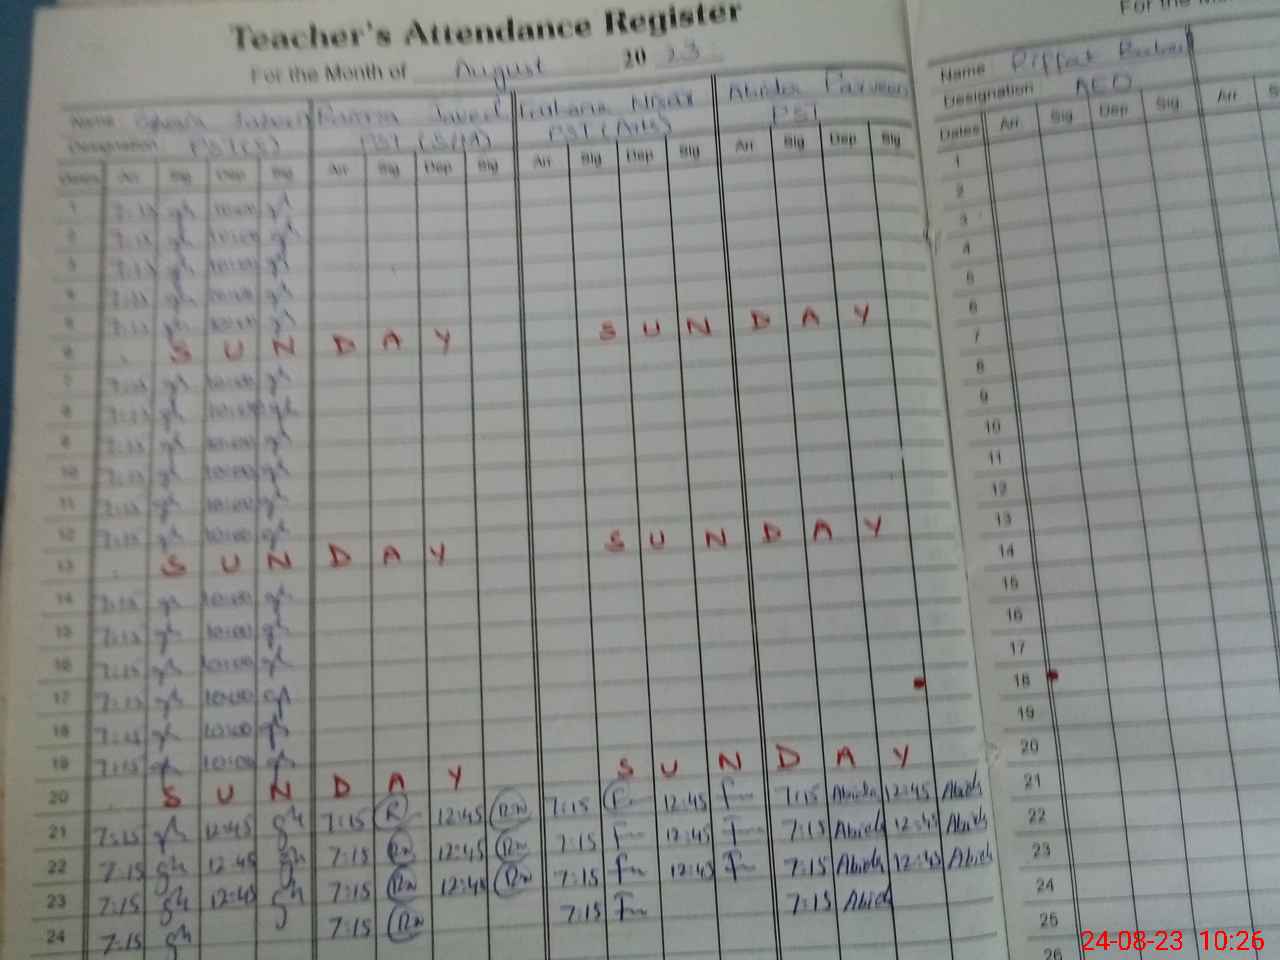 Teacher's Attendance Register
For the Month of August 2023
For the
Name Javed Nisar Abida Parveen
Designation PST(S) PST (S/A) PST (Arts) PST
Dates Arr Sig Dep Sig Arr Sig Dep Sig Arr Sig Dep Sig Arr Sig Dep Sig
1 7:15 gh 10:00 gh
2 7:15 gh 10:00 gh
3 7:15 gh 10:00 gh
4 7:15 gh 10:00 gh
5 7:15 gh 10:00 gh
6 S U N D A Y S U N D A Y
7 7:15 gh 10:00 gh
8 7:15 gh 10:00 gh
9 7:15 gh 10:00 gh
10 7:15 gh 10:00 gh
11 7:15 gh 10:00 gh
12 7:15 gh 10:00 gh
13 S U N D A Y S U N D A Y
14 7:15 gh 10:00 gh
15 7:15 gh 10:00 gh
16 7:15 gh 10:00 gh
17 7:15 gh 10:00 gh
18 7:15 gh 10:00 gh
19 7:15 gh 10:00 gh
20 S U N D A Y S U N D A Y
21 7:15 gh 12:45 gh 7:15 12:45 7:15 12:45 7:15 Abida 12:45 Abida
22 7:15 gh 12:45 gh 7:15 12:45 7:15 12:45 7:15 Abida 12:45 Abida
23 7:15 gh 12:45 gh 7:15 12:45 7:15 12:45 7:15 Abida 12:45 Abida
24 7:15 gh 7:15 7:15 7:15 Abida
Name Riffat
Designation AEO
Dates Arr Sig Dep Sig Arr
1
2
3
4
5
6
7
8
9
10
11
12
13
14
15
16
17
18
19
20
21
22
23
24
25
26
24-08-23 10:26